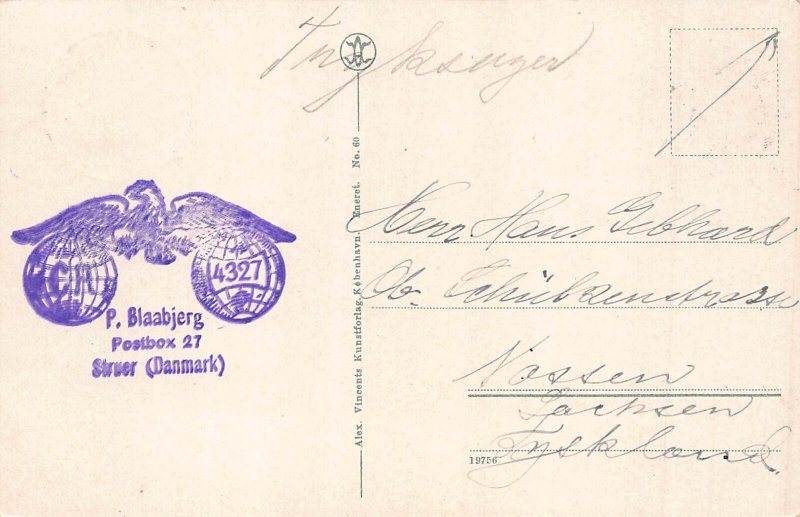 Tryksager
CM
4327
P. Blaabjerg
Postbox 27
Struer (Danmark)
Alex. Vincents Kunstforlag. København. Eneret. No. 60
Herr Hans Gebhard
Ob. Schützenstrasse
Nossen
Sachsen
Tyskland.
19756